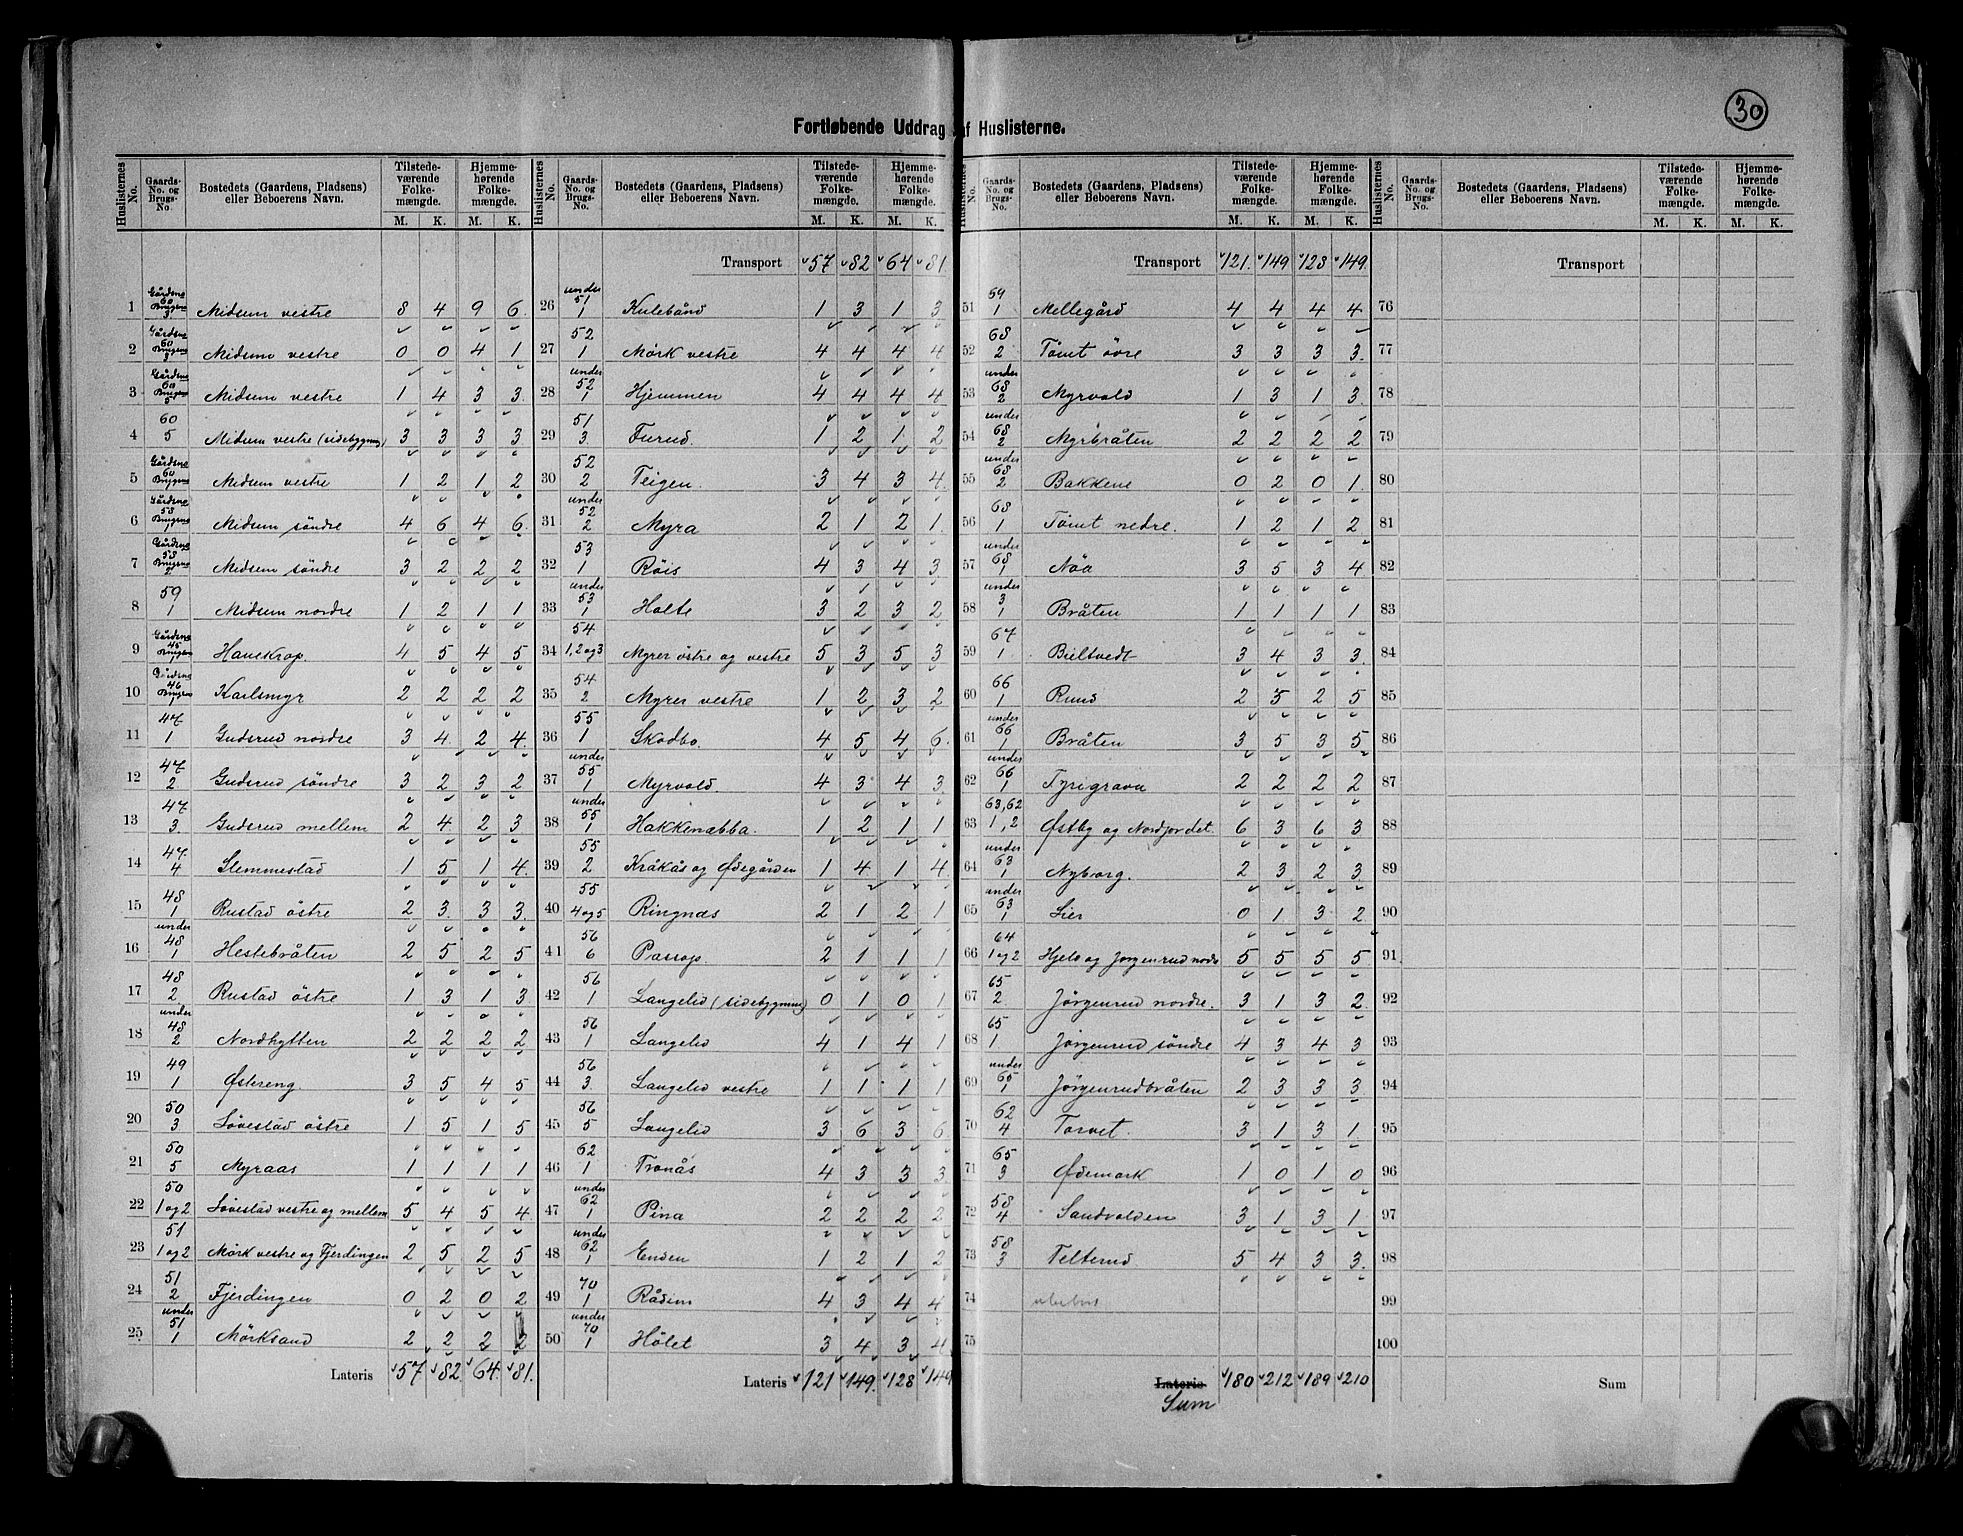 30
Fortløbende Uddrag af Huslisterne.
Huslisternes No. Gaards-No. og Brugs-No. Bostedets (Gaardens, Pladsens) eller Beboerens Navn. Tilstedeværende Folkemængde. M. K. Hjemmehørende Folkemængde. M. K.
1 Gårdsno 60 Brugsno 3 Midsem vestre 8 4 9 6
2 Gårdsno 60 Brugsno 3 Midsem vestre 0 0 4 1
3 Gårdsno 60 Brugsno 5 Midsem vestre 1 4 3 3
4 60 5 Midsem vestre (sidebygning) 3 3 3 3
5 Gårdsno 60 Brugsno 1 Midsem vestre 1 2 1 2
6 Gårdsno 58 Brugsno 1 Midsem söndre 4 6 4 6
7 Gårdsno 58 Brugsno 2 Midsem söndre 3 2 2 2
8 59 1 Midsem nordre 1 2 1 1
9 Gårdsno 45 Brugsno 1 Haverkrop. 4 5 4 5
10 Gårdsno 46 Brugsno 1 Karlsmyr 2 2 2 2
11 47 1 Gudsrud nordre 3 4 2 4
12 47 2 Gudsrud söndre 3 2 3 2
13 47 3 Gudsrud mellem 2 4 2 3
14 47 4 Slemmestad 1 5 1 4
15 48 1 Rustad östre 2 3 3 3
16 under 48 1 Hestebråten 2 5 2 5
17 48 2 Rustad östre 1 3 1 3
18 under 48 2 Nordhytten 2 2 2 2
19 49 1 Østereng 3 5 4 5
20 50 3 Lövestad östre 1 5 1 5
21 50 5 Myraas 1 1 1 1
22 50 1 og 2 Lövestad vestre og mellem 5 4 5 4
23 51 1 og 2 Mörk vestre og Fjerdingen 2 5 2 5
24 51 2 Fjerdingen 0 2 0 2
25 under 51 1 Mörksand 2 2 2 2
Lateris 57 82 64 81
Huslisternes No. Gaards-No. og Brugs-No. Bostedets (Gaardens, Pladsens) eller Beboerens Navn. Tilstedeværende Folkemængde. M. K. Hjemmehørende Folkemængde. M. K.
Transport 57 82 64 81
26 under 51 1 Kulebånd 1 3 1 3
27 52 1 Mörk vestre 4 4 4 4
28 under 52 1 Hjemmen 4 4 4 4
29 51 3 Furud. 1 2 1 2
30 52 2 Teigen. 3 4 3 4
31 under 52 2 Myra 2 1 2 1
32 53 1 Röis 4 3 4 3
33 under 53 1 Holte 3 2 3 2
34 54 1, 2 og 3 Myrer östre og vestre 5 3 5 3
35 54 2 Myrer vestre 1 2 3 2
36 55 1 Skodbo. 4 5 4 6
37 under 55 1 Myrvold. 4 3 4 3
38 under 55 1 Hakkenabba. 1 2 1 1
39 55 2 Kråkås og Ødegården 1 4 1 4
40 55 4 og 5 Ringnæs 2 1 2 1
41 56 6 Passop. 2 1 1 1
42 56 1 Langelid (sidebygning) 0 1 0 1
43 56 1 Langelid 4 1 4 1
44 56 3 Langelid vestre 1 1 1 1
45 56 5 Langelid 3 6 3 6
46 62 1 Tronås 4 3 3 3
47 under 62 1 Pina 2 2 2 2
48 under 62 1 Enden 1 2 1 2
49 70 1 Rådim 4 3 4 4
50 under 70 1 Hölet 3 4 3 4
Lateris 121 149 128 149
Huslisternes No. Gaards-No. og Brugs-No. Bostedets (Gaardens, Pladsens) eller Beboerens Navn. Tilstedeværende Folkemængde. M. K. Hjemmehørende Folkemængde. M. K.
Transport 121 149 128 149
51 59 1 Mellegård 4 4 4 4
52 68 2 Tömt övre 3 3 3 3
53 under 68 2 Myrvold 1 3 1 3
54 under 68 2 Myrbråten 2 2 2 2
55 under 68 2 Bakkene 0 2 0 1
56 68 1 Tömt nedre. 1 2 1 2
57 under 68 1 Nöa 3 5 3 4
58 under 3 1 Bråten 1 1 1 1
59 67 1 Bieltvedt 3 4 3 3
60 66 1 Ruud 2 5 2 5
61 under 66 1 Bråten 3 5 3 5
62 under 66 1 Tyrigrava 2 2 2 2
63 63, 62 1, 2 Østby og Nordjordet. 6 3 6 3
64 under 63 1 Nyborg. 2 3 2 3
65 under 63 1 Lier 0 1 3 2
66 64 1 og 2 Hjels og Jörgenrud nodr 5 5 5 5
67 65 2 Jörgenrud nordre. 3 1 3 2
68 65 1 Jörgenrud söndre 4 3 4 3
69 under 65 1 Jörgenrudbråten 2 3 3 3
70 62 4 Torvet. 3 1 3 1
71 65 3 Ødemark 1 0 1 0
72 58 4 Sandvolden 3 1 3 1
73 58 3 Telterud 5 4 3 3
74
75
Lateris Sum 180 212 189 210
Huslisternes No. Gaards-No. og Brugs-No. Bostedets (Gaardens, Pladsens) eller Beboerens Navn. Tilstedeværende Folkemængde. M. K. Hjemmehørende Folkemængde. M. K.
Transport
76
77
78
79
80
81
82
83
84
85
86
87
88
89
90
91
92
93
94
95
96
97
98
99
100
Sum